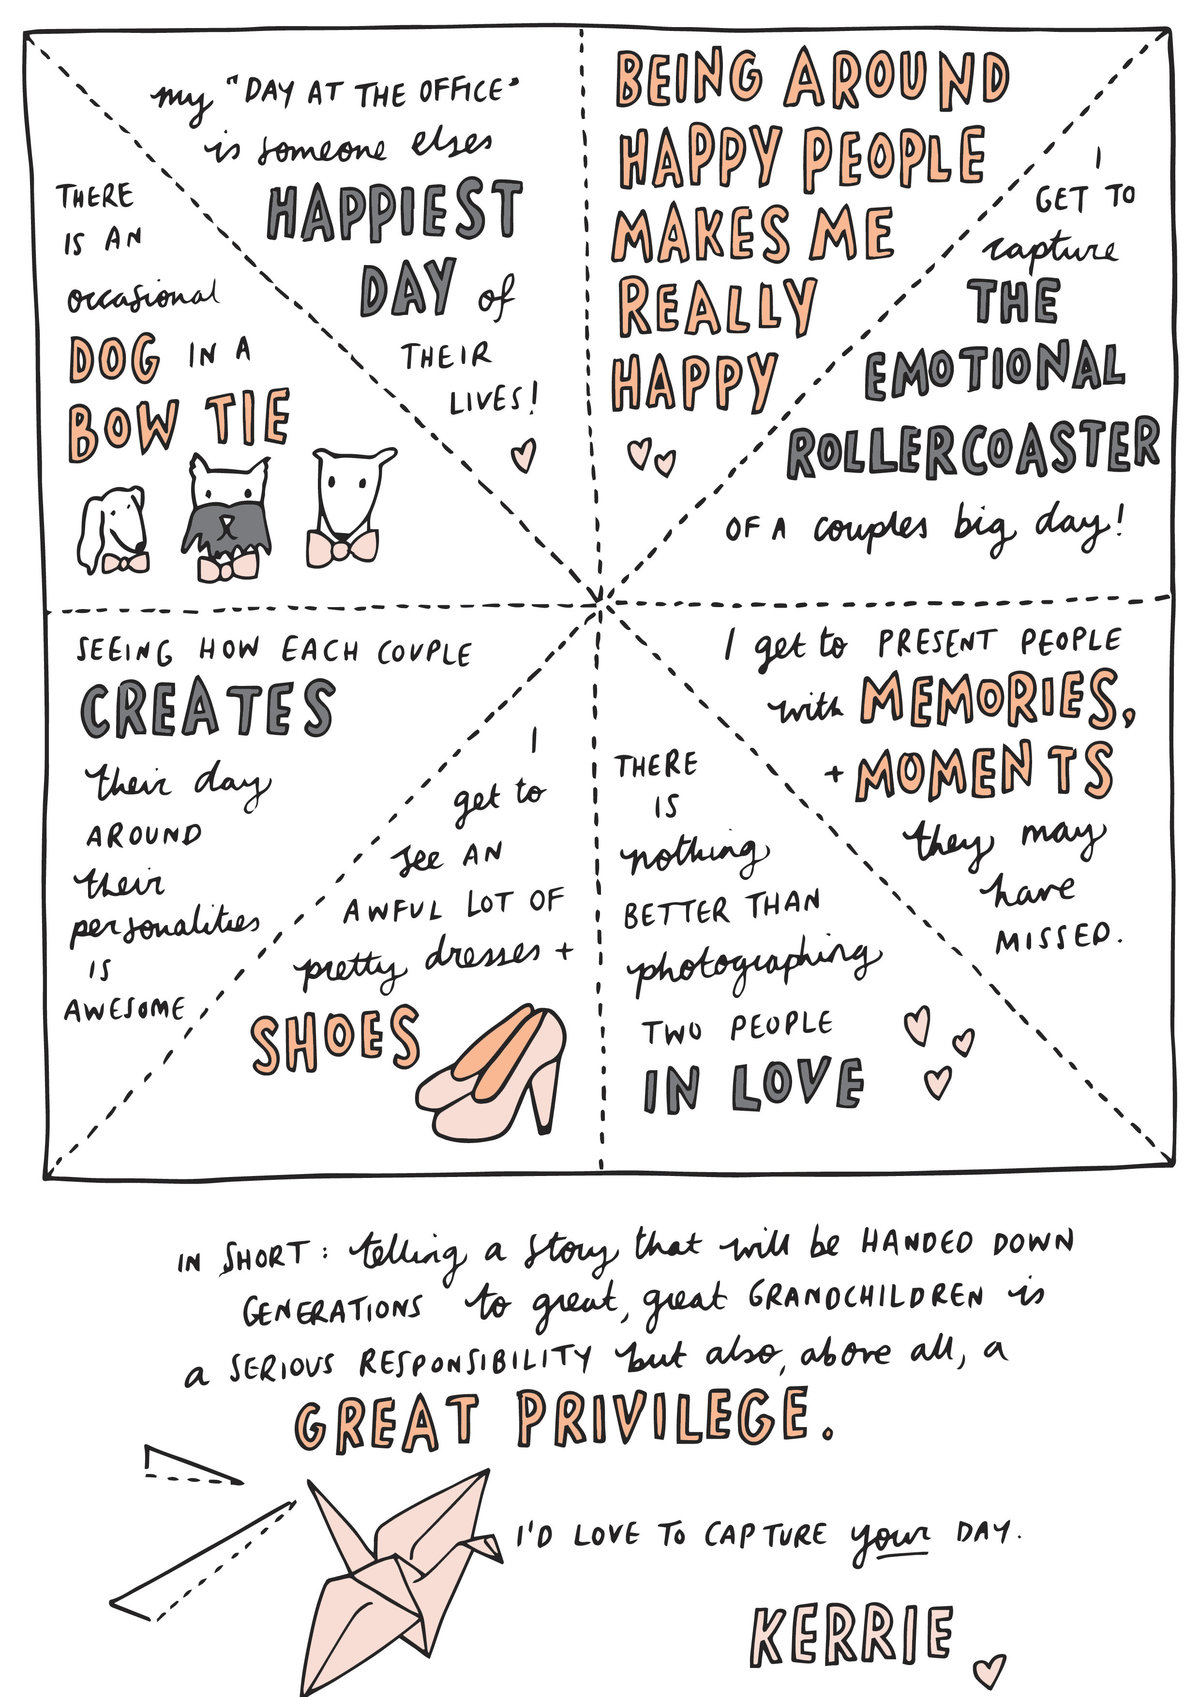 my "DAY AT THE OFFICE"
is someone elses
HAPPIEST
DAY of
THEIR
LIVES!
BEING AROUND
HAPPY PEOPLE
MAKES ME
REALLY
HAPPY
I
GET TO
capture
THE
EMOTIONAL
ROLLERCOASTER
OF A couples big day!
THERE
IS AN
occasional
DOG IN A
BOW TIE
SEEING HOW EACH COUPLE
CREATES
their day
AROUND
their
personalities
IS
AWESOME
I
get to
see AN
AWFUL LOT OF
pretty dresses +
SHOES
THERE
IS
nothing
BETTER THAN
photographing
TWO PEOPLE
IN LOVE
I get to PRESENT PEOPLE
with MEMORIES,
+ MOMENTS
they may
have
MISSED.
IN SHORT: telling a story that will be HANDED DOWN
GENERATIONS to great, great GRANDCHILDREN is
a SERIOUS RESPONSIBILITY but also, above all, a
GREAT PRIVILEGE.
I'D LOVE TO CAPTURE your DAY.
KERRIE